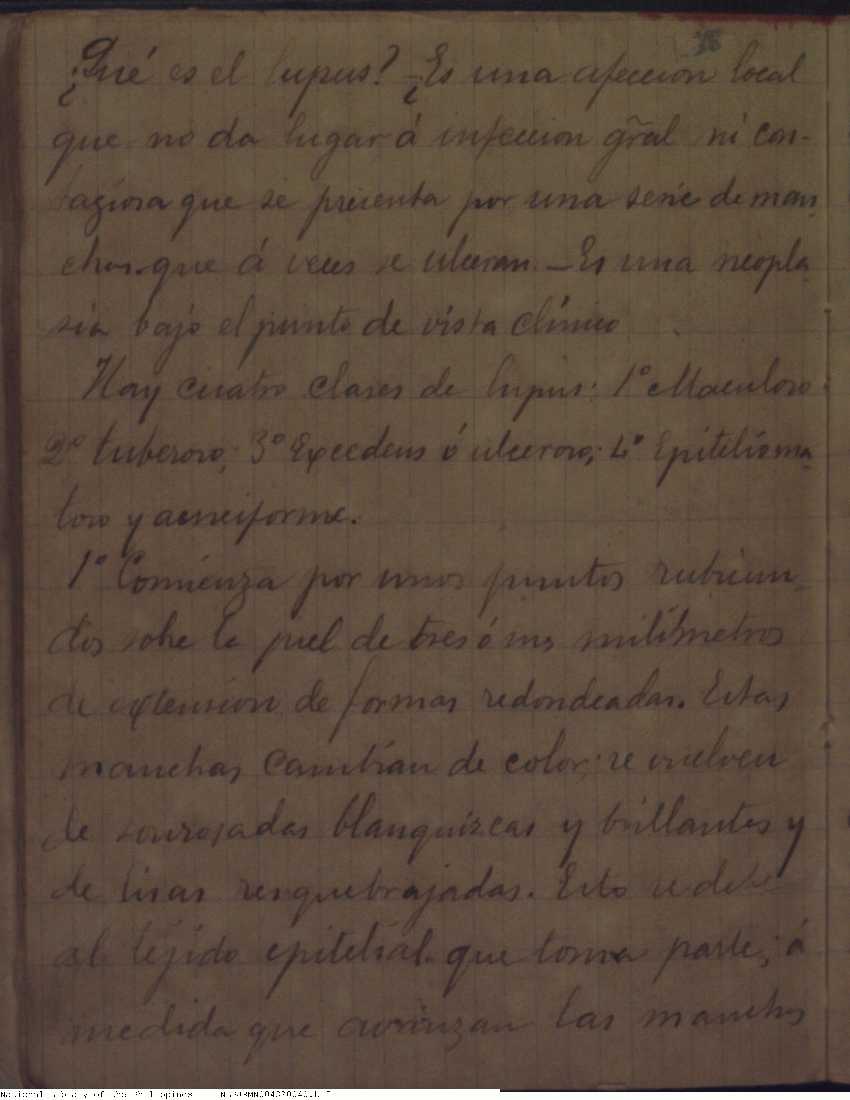 ¿Qué es el lupus? ¿Es una afeccion local
que no da lugar á infeccion gr̃al ni con-
tagiosa que se presenta por una serie de man
chas que á veces se ulceran — Es una neopla
sia bajo el punto de vista clínico
Hay cuatro clases de lupus: 1º Maculoso
2º tuberoso; 3º Exedens ó ulceroso; 4º Epitelioma
toso y acneiforme.
1º Comienza por unos puntos rubicun
dos sobre la piel de tres ó mas milímetros
de extension de formas redondeadas. Estas
manchas cambian de color; se vuelven
de sonrosadas blanquizcas y brillantes y
de lisas resquebrajadas. Esto se debe
al tejido epitelial que toma parte; á
medida que avanzan las manchas
National Library of the Philippines